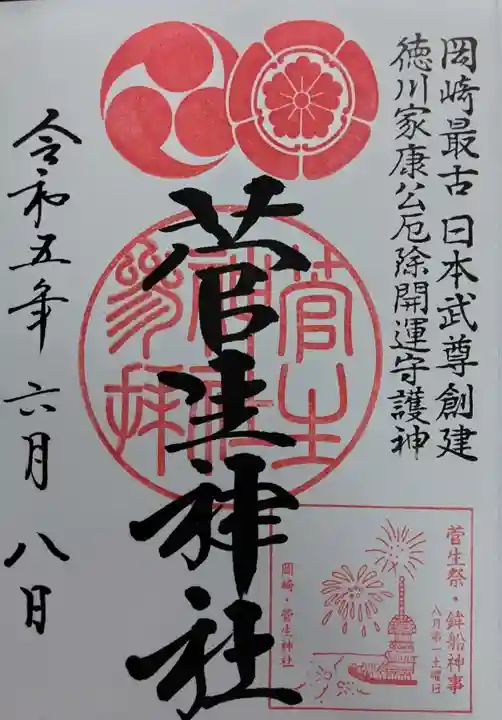 岡崎最古 日本武尊創建
徳川家康公厄除開運守護神
菅生神社
菅生
神社
参拝
令和五年 六月 八日
菅生祭・鉾船神事
八月第一土曜日
岡崎・菅生神社